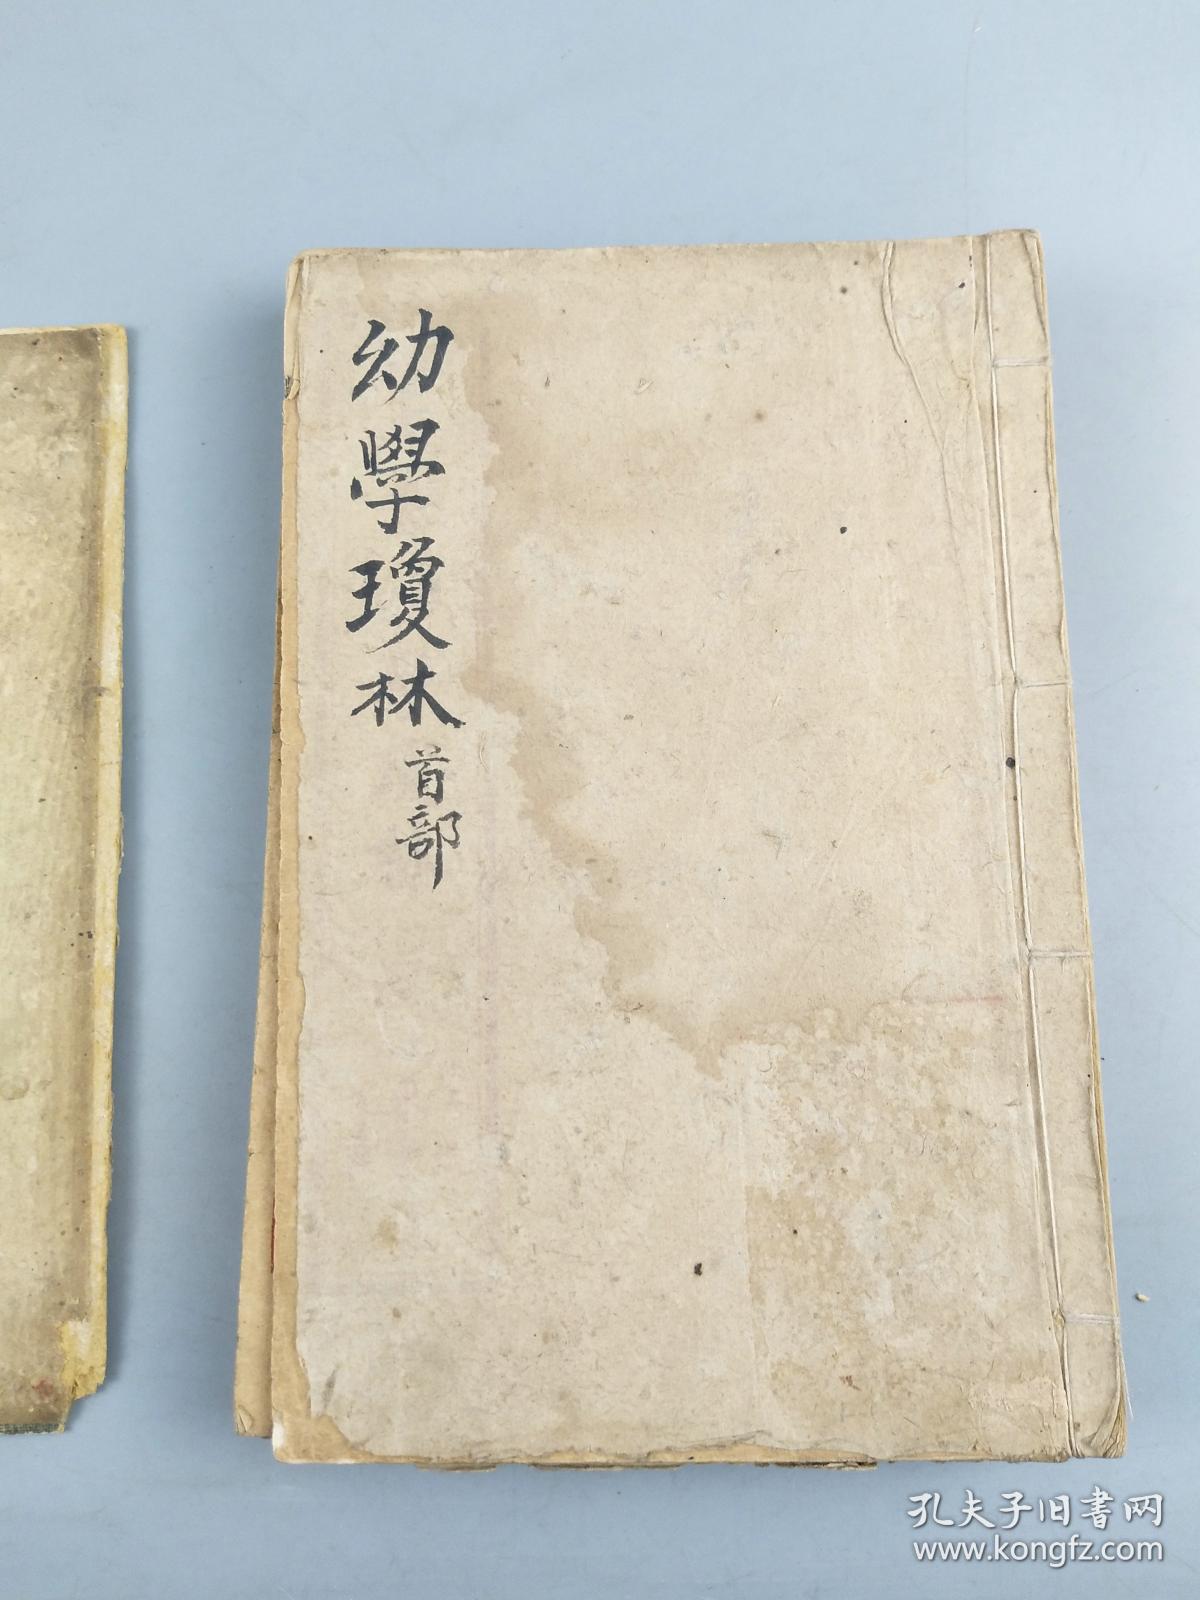 幼學瓊林
首部
孔夫子旧書网
www.kongfz.com